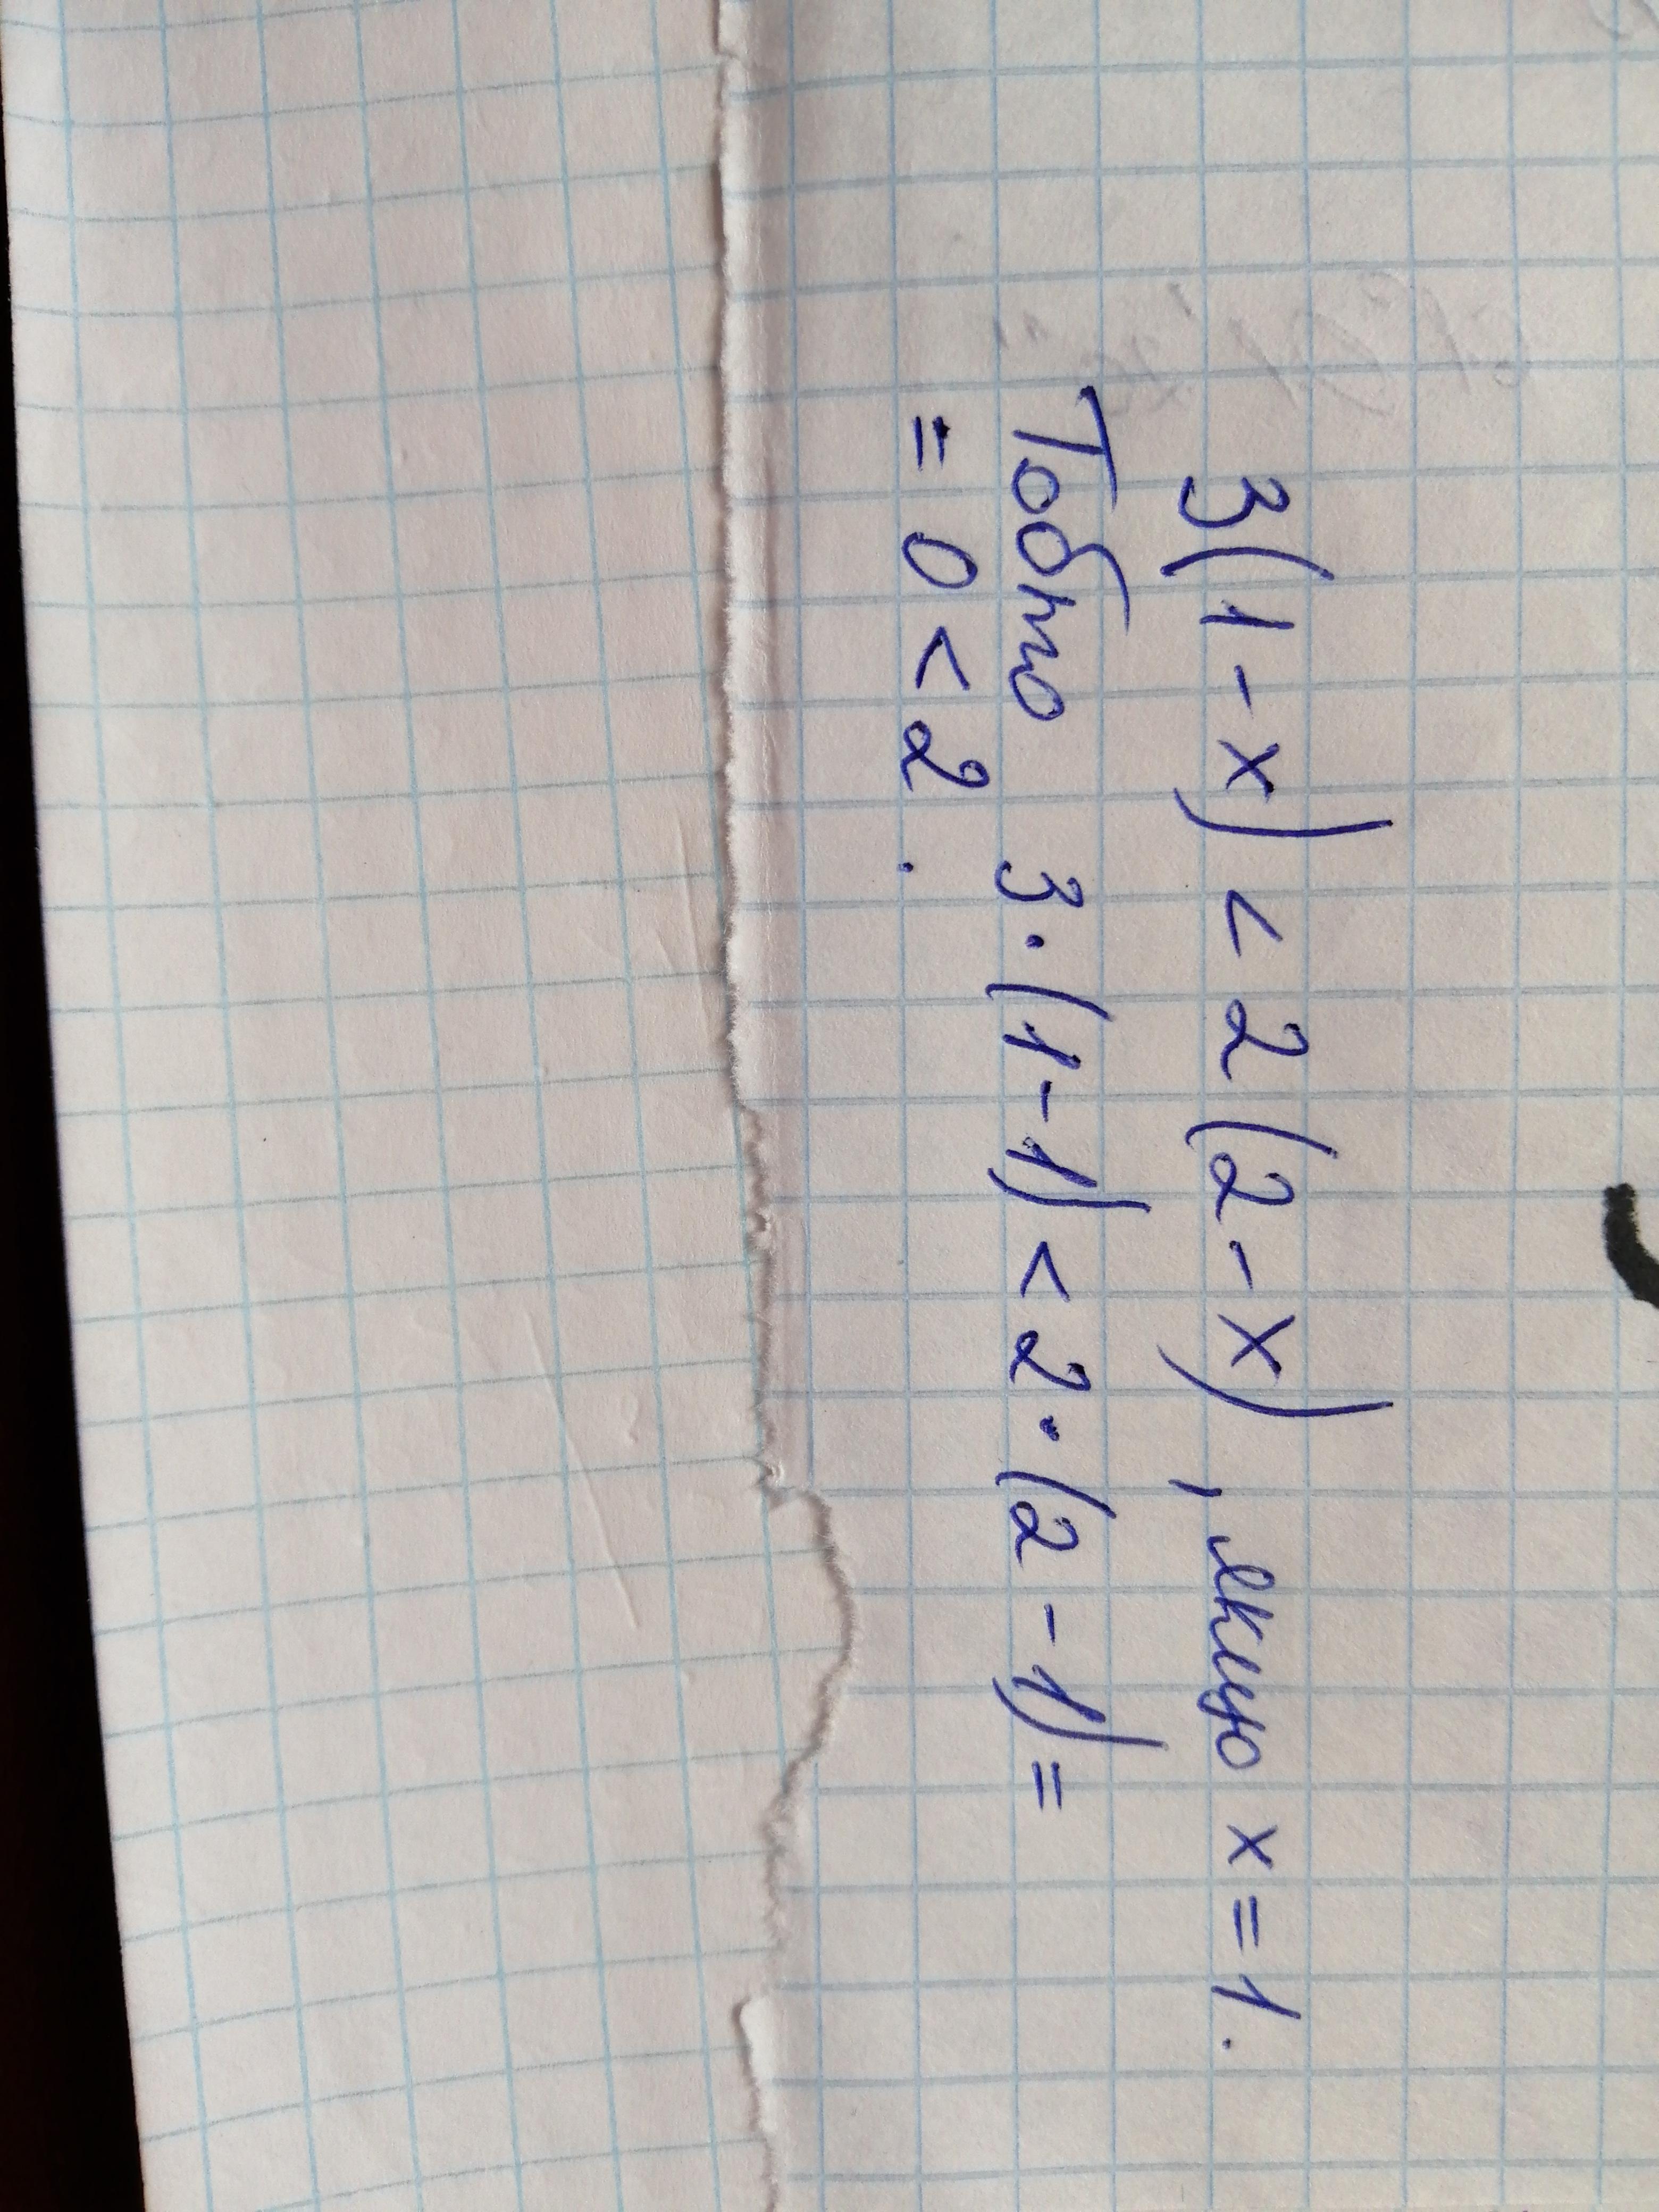 3(1-x) < 2(2-x), якщо x=1.
Тобто 3·(1-1) < 2·(2-1) =
= 0 < 2.